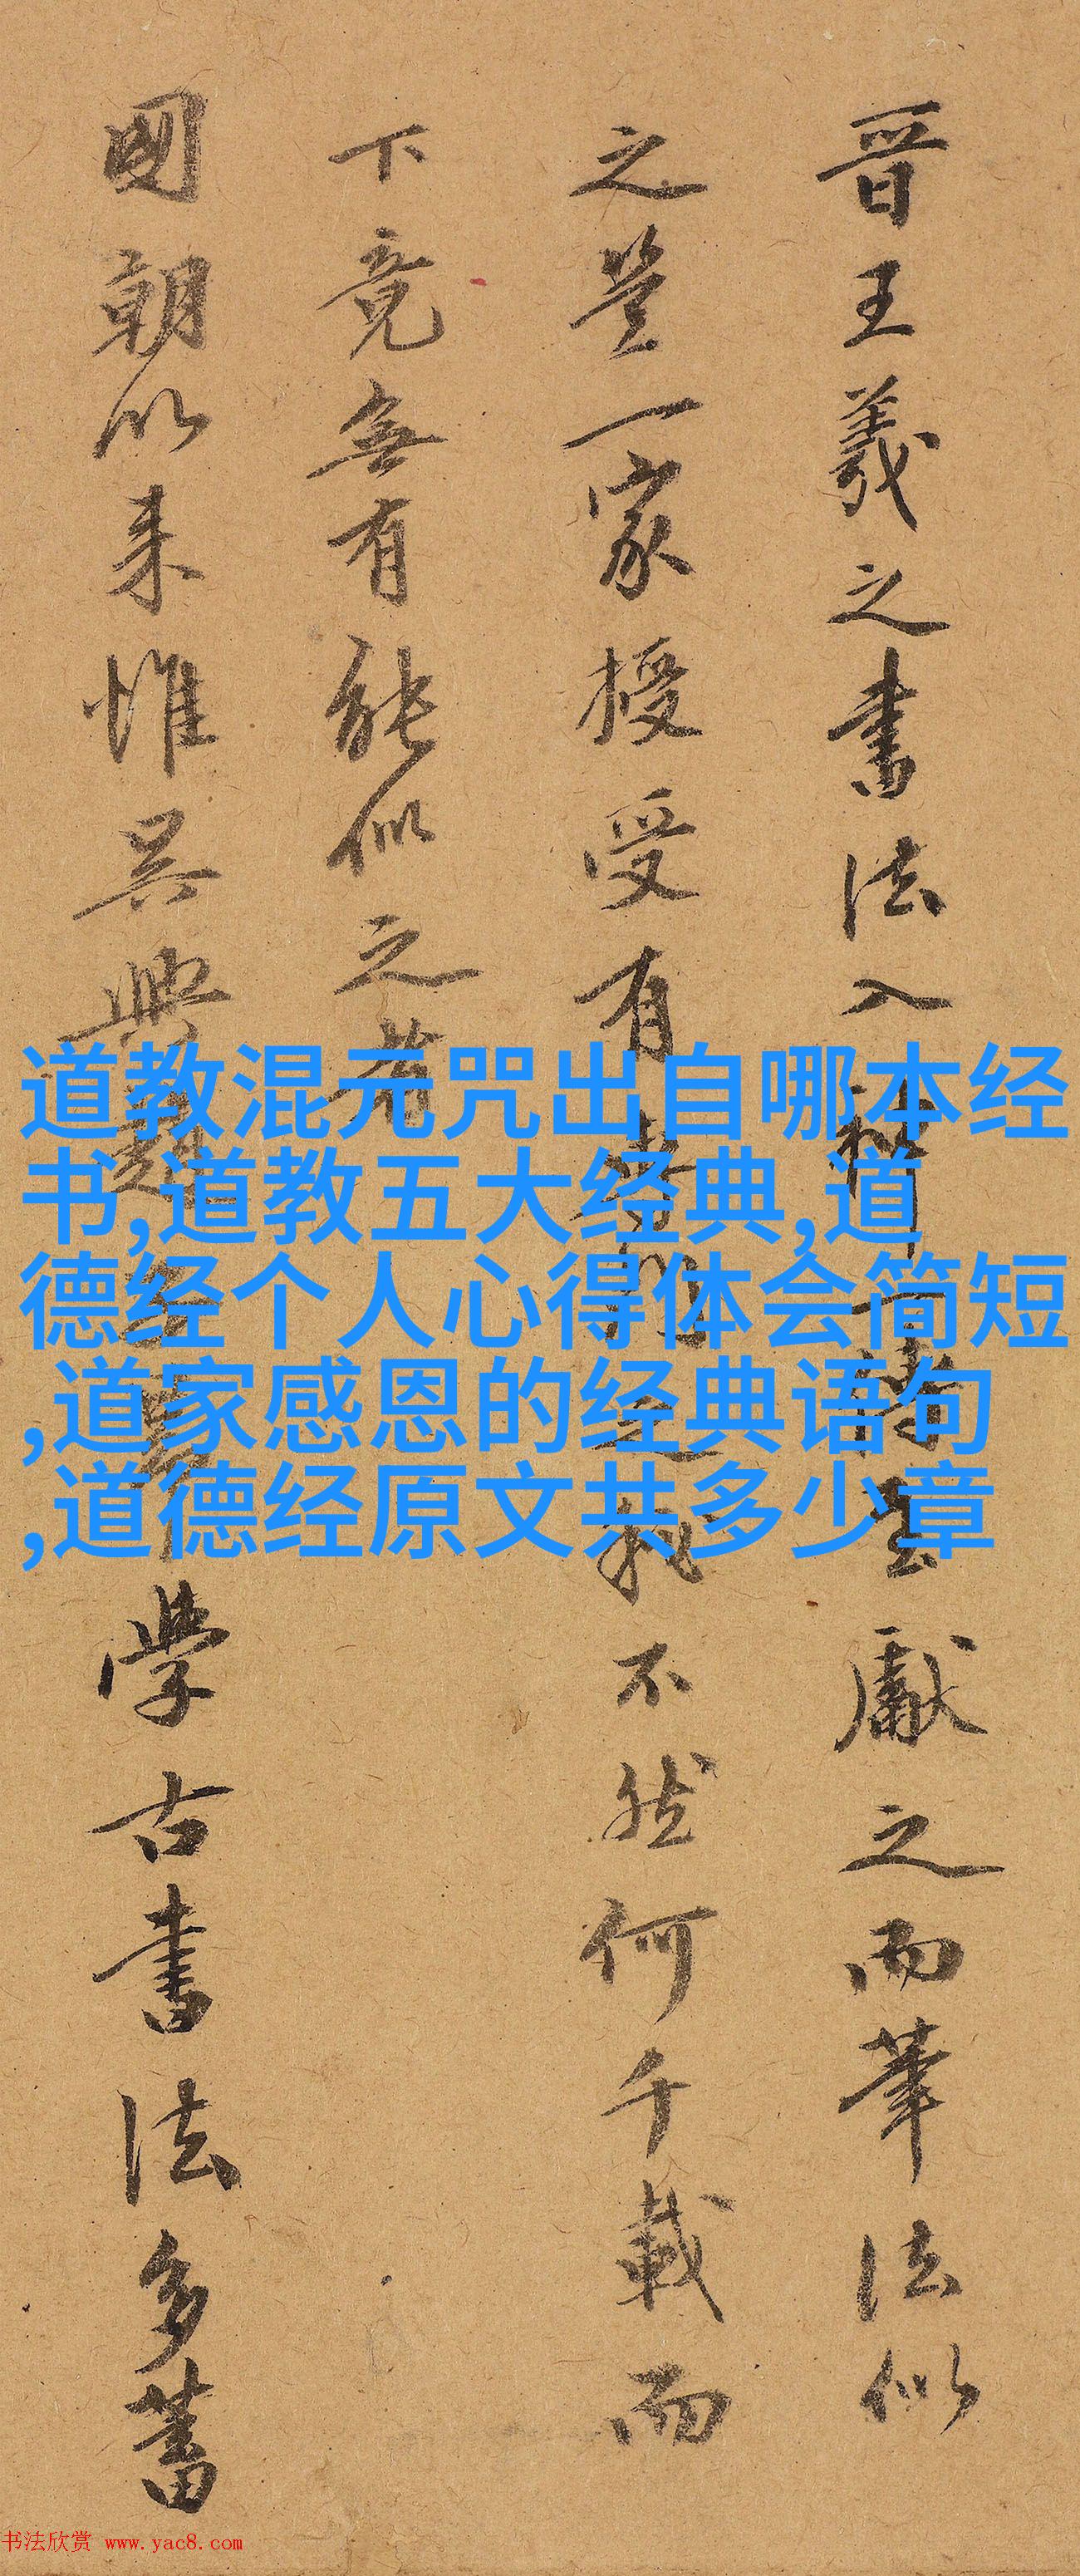 晉王羲之書法入神其子獻之而筆法似
之豈一家授受有
不然何千載而
下竟無有能似之者
國朝以来惟吴興趙
學古書法多蓄
道教混元咒出自哪本经
书,道教五大经典,道
德经个人心得体会简短
,道家感恩的经典语句
,道德经原文共多少章
书法欣赏 www.yac8.com